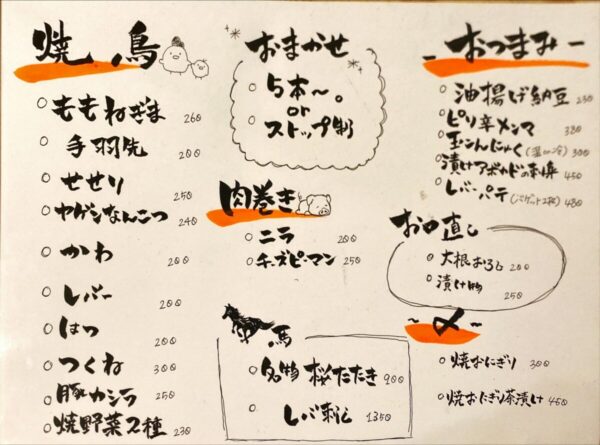 焼鳥
ももねぎま 260
手羽先 200
せせり 250
ヤゲンなんこつ 240
かわ 200
レバー 200
はつ 200
つくね 300
豚カシラ 250
焼野菜2種 230
おまかせ
5本〜。
or
ストップ制
肉巻き
ニラ 200
チーズピーマン 250
馬
名物 桜たたき 900
レバ刺し 1350
おつまみ
油揚げ納豆 230
ピリ辛メンマ 380
玉こんにゃく(温or冷) 300
漬けアボカドの串焼 450
レバーパテ(バゲット2枚) 480
お口直し
大根おろし 200
漬け物 250
〜〆〜
焼おにぎり 300
焼おにぎり茶漬け 450